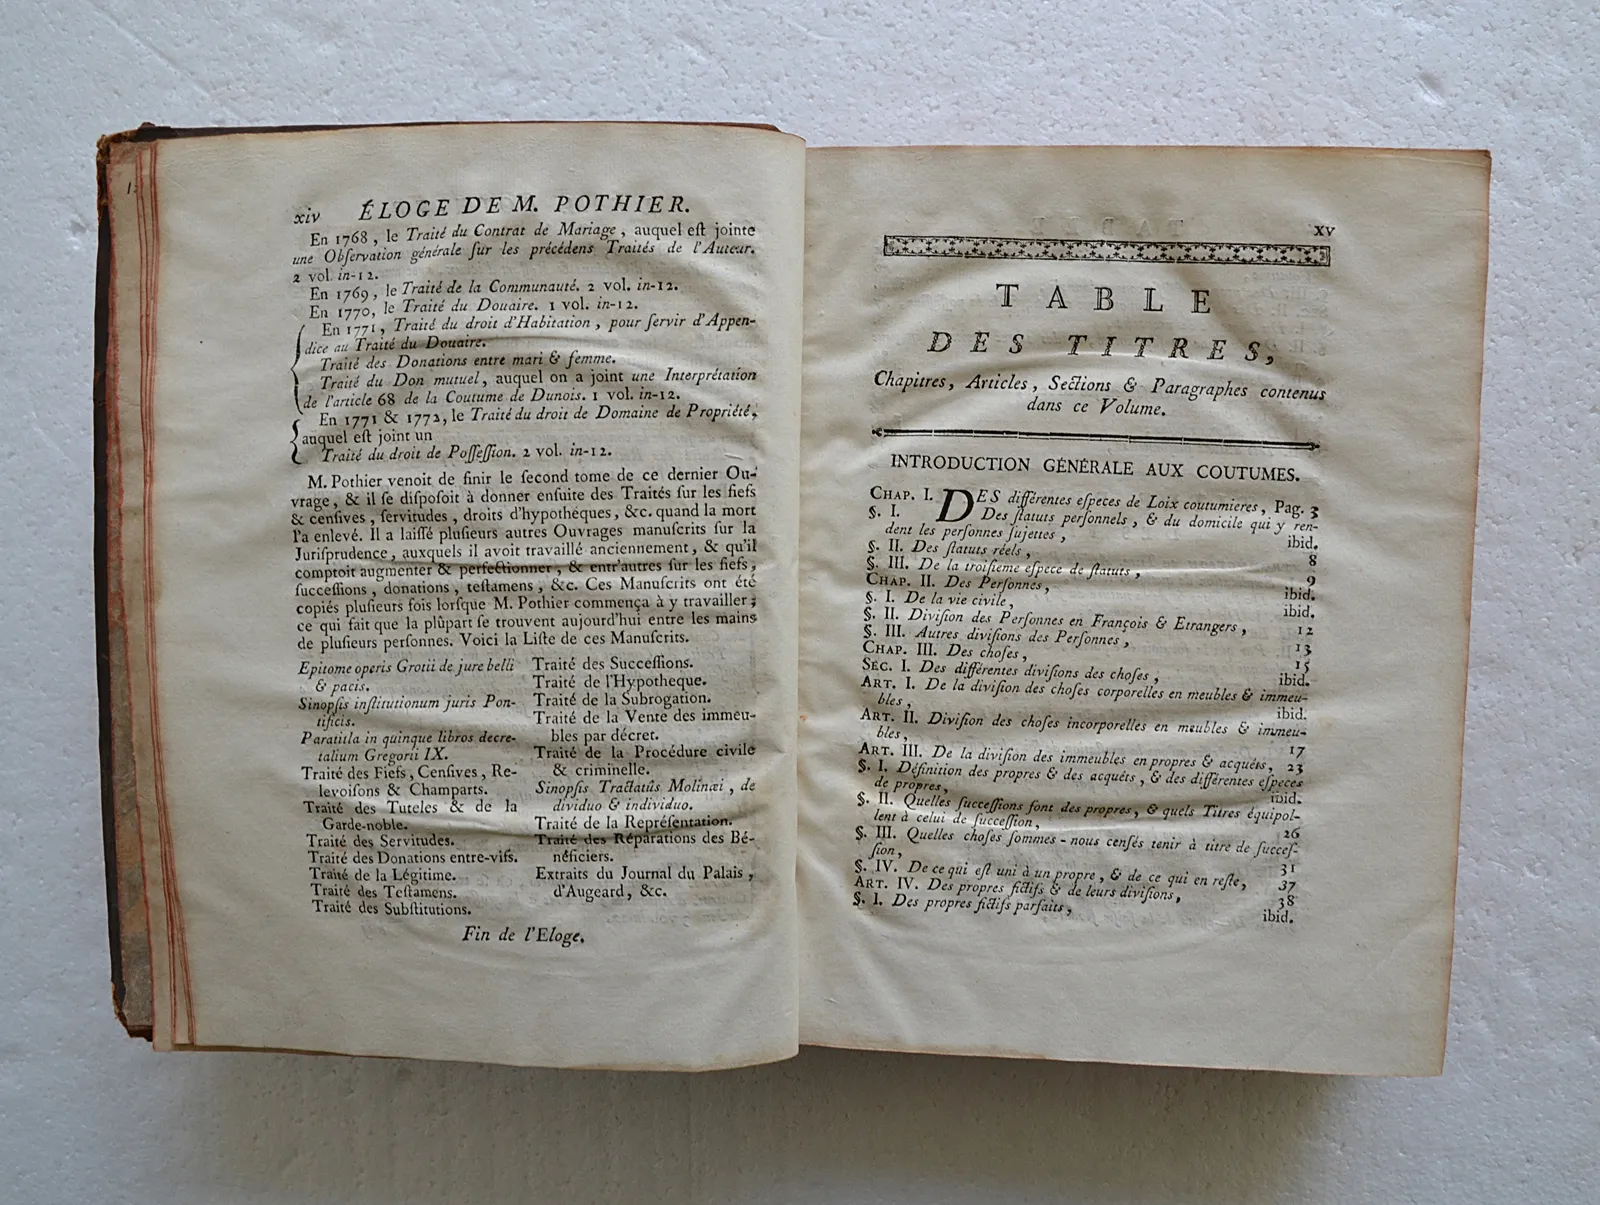 xiv ÉLOGE DE M. POTHIER.
En 1768, le Traité du Contrat de Mariage, auquel eſt jointe
une Obſervation générale ſur les précédens Traités de l'Auteur.
2 vol. in-12.
En 1769, le Traité de la Communauté. 2 vol. in-12.
En 1770, le Traité du Douaire. 1 vol. in-12.
En 1771, Traité du droit d'Habitation, pour ſervir d'Appen-
dice au Traité du Douaire.
Traité des Donations entre mari & femme.
Traité du Don mutuel, auquel on a joint une Interprétation
de l'article 68 de la Coutume de Dunois. 1 vol. in-12.
En 1771 & 1772, le Traité du droit de Domaine de Propriété,
auquel eſt joint un
Traité du droit de Poſſeſſion. 2 vol. in-12.
M. Pothier venoit de finir le ſecond tome de ce dernier Ou-
vrage, & il ſe diſpoſoit à donner enſuite des Traités ſur les fiefs
& cenſives, ſervitudes, droits d'hypothéques, &c. quand la mort
l'a enlevé. Il a laiſſé pluſieurs autres Ouvrages manuſcrits ſur la
Juriſprudence, auxquels il avoit travaillé anciennement, & qu'il
comptoit augmenter & perfectionner, & entr'autres ſur les fiefs,
ſucceſſions, donations, teſtamens, &c. Ces Manuſcrits ont été
copiés pluſieurs fois lorſque M. Pothier commença à y travailler;
ce qui fait que la plûpart ſe trouvent aujourd'hui entre les mains
de pluſieurs perſonnes. Voici la Liſte de ces Manuſcrits.
Epitome operis Grotii de jure belli
& pacis.
Sinopſis inſtitutionum juris Pon-
tificis.
Paratitla in quinque libros decre-
talium Gregorii IX.
Traité des Fiefs, Cenſives, Re-
levoiſons & Champarts.
Traité des Tuteles & de la
Garde-noble.
Traité des Servitudes.
Traité des Donations entre-vifs.
Traité de la Légitime.
Traité des Teſtamens.
Traité des Subſtitutions.
Traité des Succeſſions.
Traité de l'Hypotheque.
Traité de la Subrogation.
Traité de la Vente des immeu-
bles par décret.
Traité de la Procédure civile
& criminelle.
Sinopſis Tractatûs Molinæi, de
dividuo & individuo.
Traité de la Repréſentation.
Traité des Réparations des Bé-
néficiers.
Extraits du Journal du Palais,
d'Augeard, &c.
Fin de l'Eloge.
xv
TABLE
DES TITRES,
Chapitres, Articles, Sections & Paragraphes contenus
dans ce Volume.
INTRODUCTION GÉNÉRALE AUX COUTUMES.
CHAP. I. DES différentes eſpeces de Loix coutumieres, Pag. 3
§. I. Des ſtatuts perſonnels, & du domicile qui y ren-
dent les perſonnes ſujettes, ibid.
§. II. Des ſtatuts réels, 8
§. III. De la troiſieme eſpece de ſtatuts, 9
CHAP. II. Des Perſonnes, ibid.
§. I. De la vie civile, ibid.
§. II. Diviſion des Perſonnes en François & Etrangers, 12
§. III. Autres diviſions des Perſonnes, 13
CHAP. III. Des choſes, 15
SÉC. I. Des différentes diviſions des choſes, ibid.
ART. I. De la diviſion des choſes corporelles en meubles & immeu-
bles, ibid.
ART. II. Diviſion des choſes incorporelles en meubles & immeu-
bles, 17
ART. III. De la diviſion des immeubles en propres & acquêts, 23
§. I. Définition des propres & des acquêts, & des différentes eſpeces
de propres, ibid.
§. II. Quelles ſucceſſions font des propres, & quels Titres équipol-
lent à celui de ſucceſſion, 26
§. III. Quelles choſes ſommes-nous cenſés tenir à titre de ſucceſ-
ſion, 31
§. IV. De ce qui eſt uni à un propre, & de ce qui en reſte, 37
ART. IV. Des propres fictifs & de leurs diviſions, 38
§. I. Des propres fictifs parfaits, ibid.